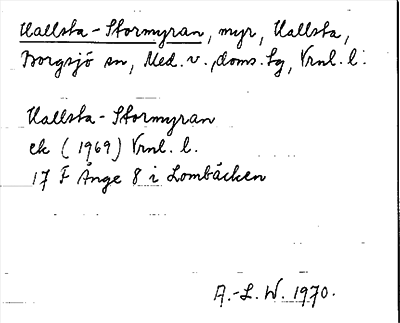 Hallsta-Stormyran, myr, Hallsta,
Borgsjö sn, Med. v. doms. tg, Vrnl. l.
Hallsta-Stormyran
ek (1969) Vrnl. l.
17 F Ånge 8 i Lombäcken
A.-L. W. 1970.